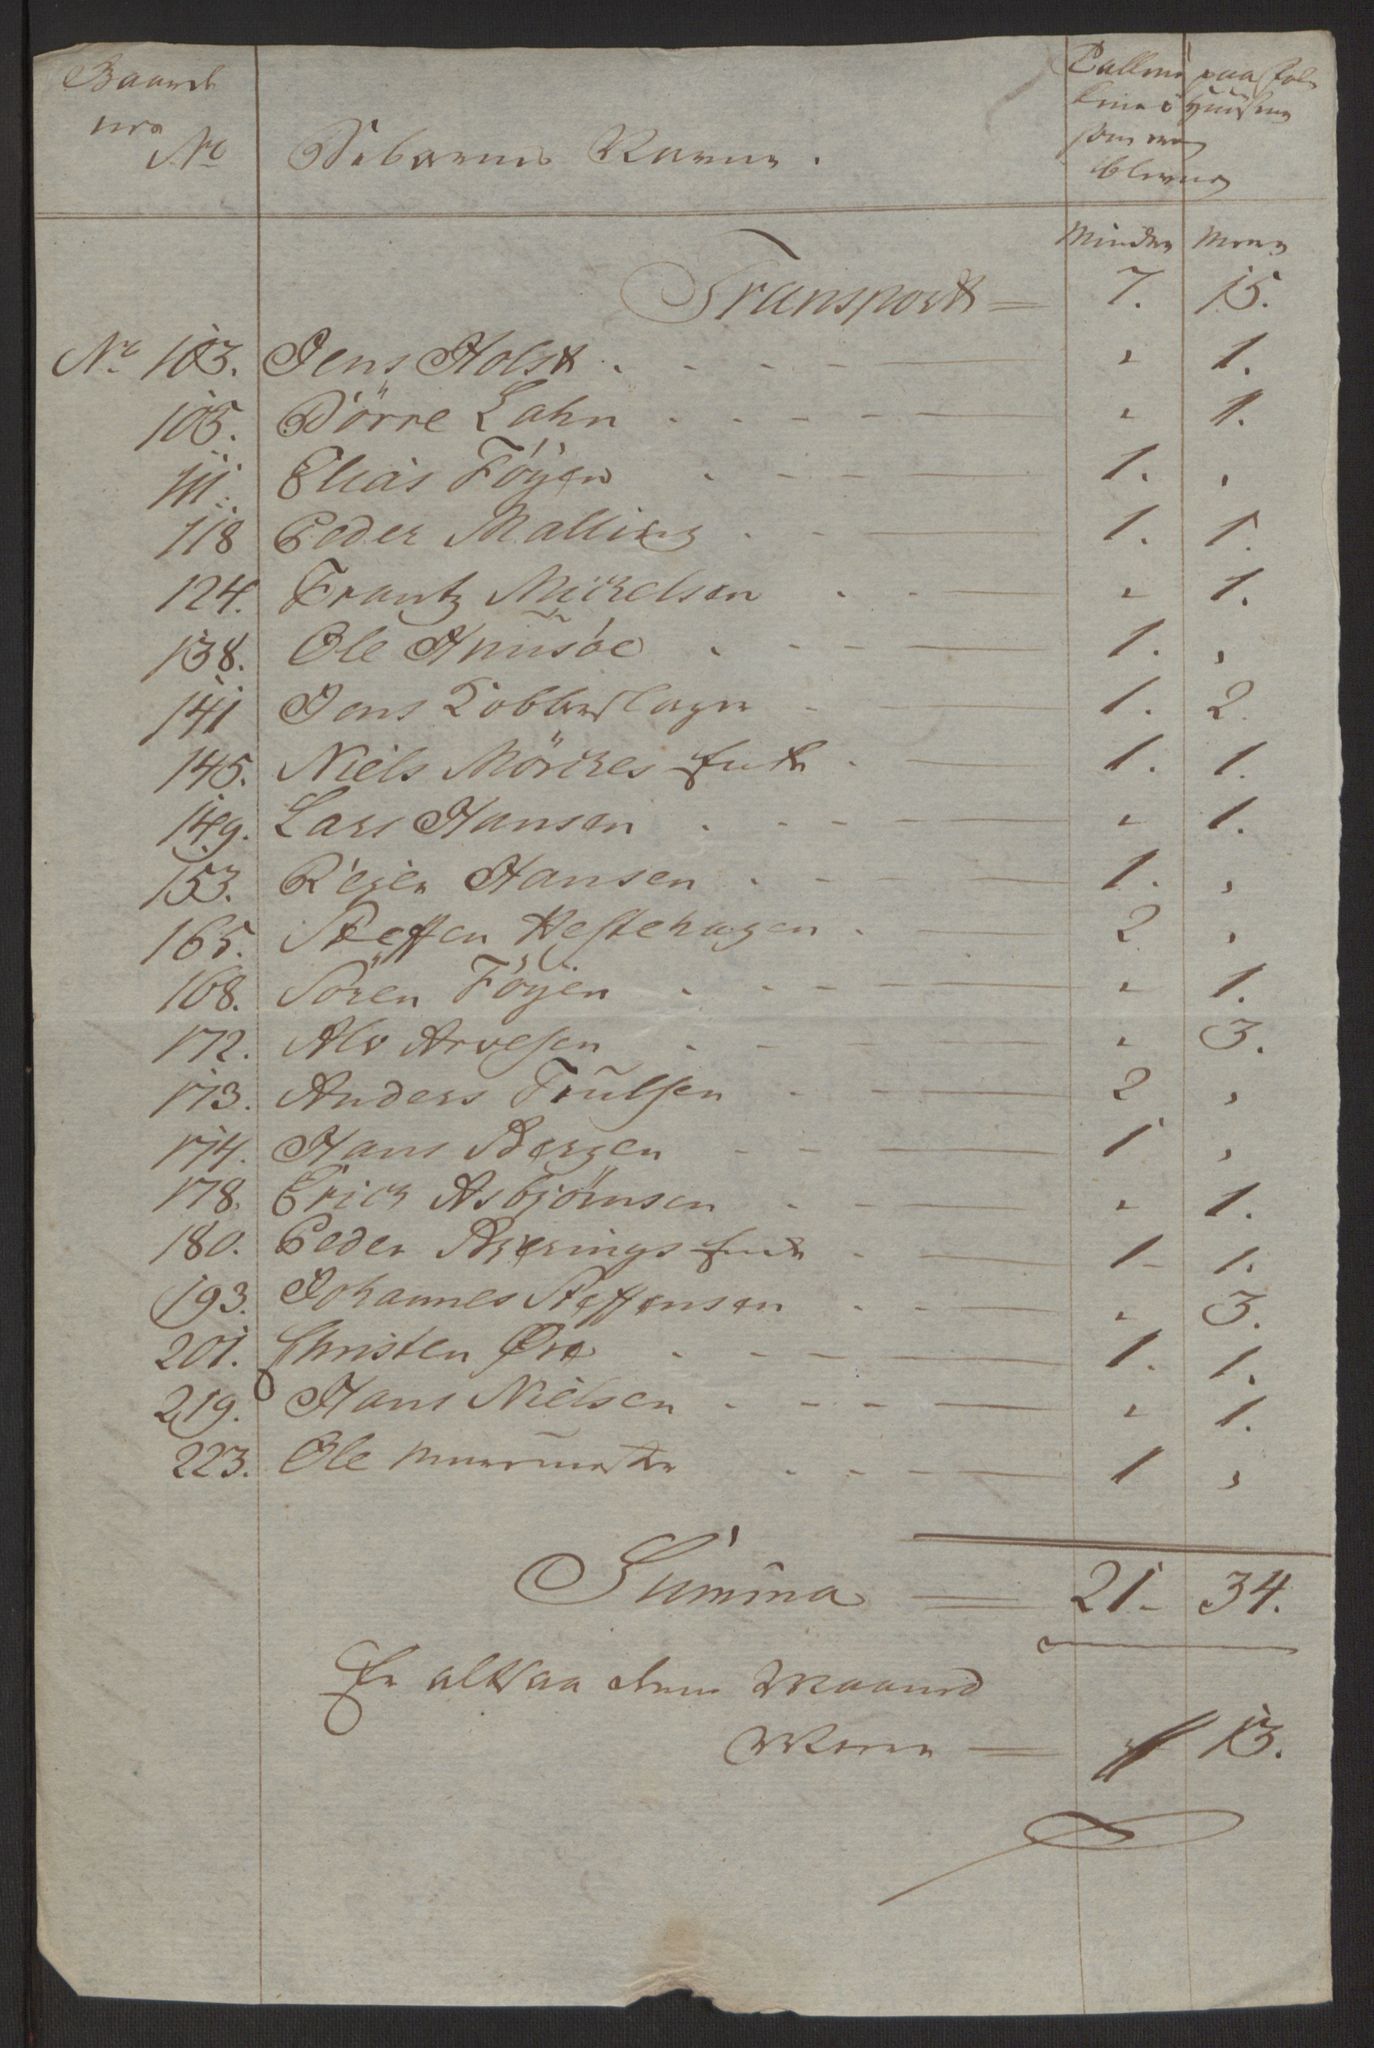 Gaards
nes
No Beboernes Navne.
Tallene paa Fol
kene i Huusene
som ere
blevne
Minder Meere
Transport = 7. 15.
No 103. Jens Holst . - - - — " 1.
105. Dörre Lahn . - - - — " 1.
111. Elias Föyen . - - — 1. ,
118 Peder Malling . - - — 1. 1.
124. Frantz Mickelsen . - — " 1.
138. Ole Huusöe . - - — 1. ,
141 Jens Kobberslager . - — 1. 2.
145. Niels Mörckes Enke . — 1. 1.
149. Lars Hansen . - - — " 1.
153. Rejer Hansen . - - — 1. ,
165. Steffen Hestehagen . — 2 ,
168. Sören Föyen . - - — " 1.
172. Alv Arvesen . - - — " 3.
173. Anders Trulsen . - — 2 ,
174. Hans Bergen - - — 1 ,
178. Erich Asbjörnsen . - — " 1.
180. Peder Brerings Enke . — 1 - 1.
193. Johannes Steffensen . - — " 3.
201. Christen Øre . - - — 1. 1.
219. Hans Nielsen . - - — " 1.
223. Ole Muurmester . - - — 1 ,
Summa = 21 - 34.
Er altsaa denne Maaned
Meere — 13.